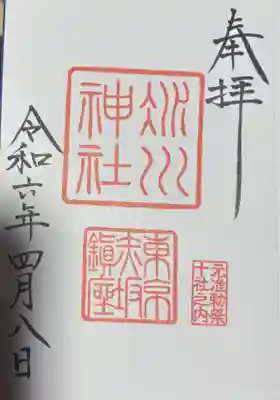 奉拝
氷川
神社
東京
赤坂
鎮座
元准勅祭
十社之内
令和六年四月八日